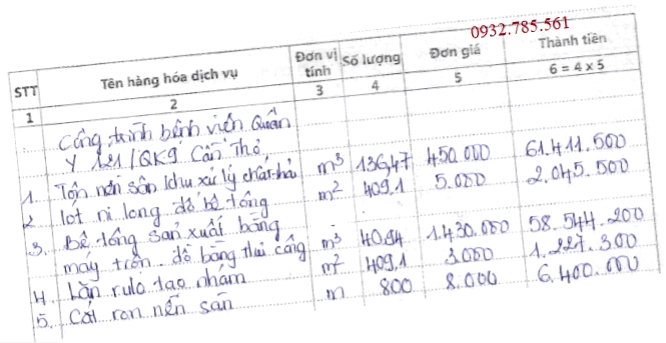 0932.785.561
STT Tên hàng hóa dịch vụ Đơn vị tính Số lượng Đơn giá Thành tiền
1 2 3 4 5 6 = 4 x 5
Công trình bệnh viện Quân
Y 121/QK9 Cần Thơ
1. Tôn nền sân khu xử lý chất thải m³ 136,47 450.000 61.411.500
2. lót ni long đổ bê tông m² 409,1 5.000 2.045.500
3. Bê tông sản xuất bằng
máy trộn đổ bằng thủ công m³ 40.94 1.430.000 58.544.200
4. Lăn rulo tạo nhám m² 409,1 3.000 1.227.300
5. Cắt ron nền sân m 800 8.000 6.400.000